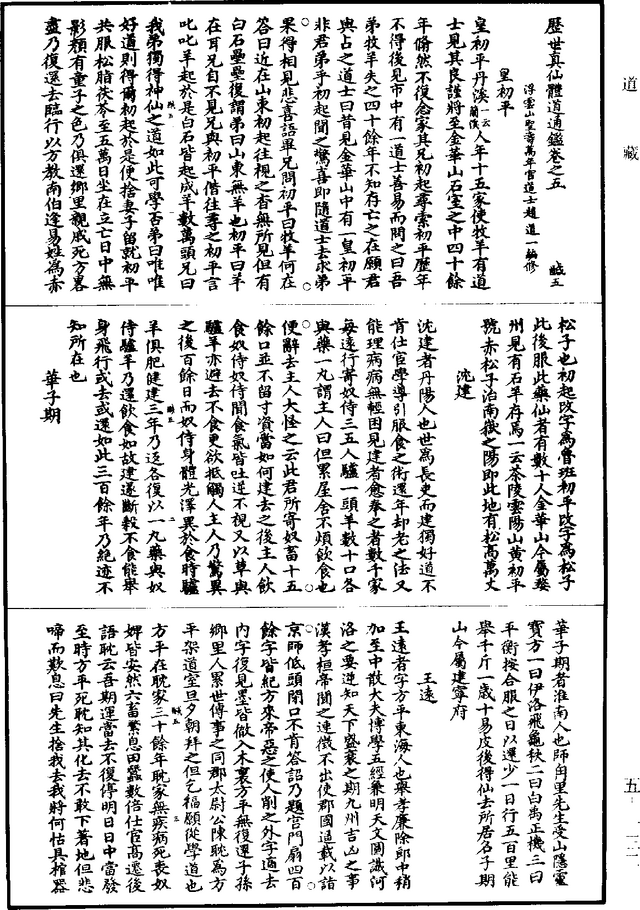 道藏
五-一三二
歷世真仙體道通鑑卷之五
浮雲山聖壽萬年宮道士趙道一編修
鹹五
皇初平
皇初平丹溪一云蘭溪人年十五家使牧羊有道
士見其良謹將至金華山石室之中四十餘
年翛然不復念家其兄初起尋索初平歷年
不得後見市中有一道士善易而問之曰吾
弟牧羊失之四十餘年不知存亡之在願君
與占之道士曰昔見金華山中有一皇初平
非君弟乎初起聞之驚喜即隨道士去求弟
果得相見悲喜語畢兄問初平曰牧羊何在
答曰近在山東初起往視之杳無所見但有
白石壘壘復謂弟曰山東無羊也初平曰羊
在耳兄自不見兄與初平偕往尋之初平言
叱叱羊起於是白石皆起成羊數萬頭兄曰
我弟獨得神仙之道如此可學否弟曰唯唯
好道則得爾初起於是便捨妻子留就初平
共服松脂茯苓至五萬日坐在立亡日中無
影顏有童子之色乃俱還鄉里親戚死方畧
盡乃復還去臨行以方教南伯逢易姓為赤
松子也初起改字為魯班初平改字為松子
此後服此藥仙者有數十人金華山今屬婺
州見有石羊存焉一云茶陵雲陽山黃初平
號赤松子治南嶽之陽即此地有松高萬丈
沈建
沈建者丹陽人也世為長吏而建獨好道不
肯仕宦學導引服食之術還年却老之法又
能理病病無輕困見建者愈奉之者數千家
每遠行寄奴侍三五人驢一頭羊數十口各
與藥一丸謂主人曰但累屋舍不煩飲食也
便辭去主人大怪之云此君所寄奴畜十五
餘口並不留寸資當如何建去之後主人飲
食奴侍奴侍聞食氣皆吐逆不視又以草與
驢羊亦避去不食更欲抵觸人主人乃驚異
之後百餘日而奴侍身體光澤異於食時驢
羊俱肥健建三年乃返各復以一丸藥與奴
侍驢羊乃還飲食如故建遂斷穀不食能舉
身飛行或去或還如此三百餘年乃絶迹不
知所在也
華子期
華子期者淮南人也師甪里先生受山隱靈
寶方一曰伊洛飛龜秩二曰白禹正機三曰
平衡按合服之日以還少一日行五百里能
舉千斤一歲十易皮後得仙去所居名子期
山今屬建寧府
王遠
王遠者字方平東海人也舉孝廉除郎中稍
加至中散大夫博學五經兼明天文圖讖河
洛之要逆知天下盛衰之期九州吉凶之事
漢孝桓帝聞之連徵不出使郡國逼載以詣
京師低頭閉口不肯答詔乃題宮門扇四百
餘字皆紀方來帝惡之使人削之外字適去
內字復見墨皆徹入木裏方平無復還子孫
鄉里人累世傳事之同郡太尉公陳耽為方
平架道室旦夕朝拜之但乞福願從學道也
方平在耽家三十餘年耽家無疾病死喪奴
婢皆安然六畜繁息田蠶數倍仕宦高遷後
語耽云吾期運當去不復停明日日中當發
至時方平死耽知其化去不敢下著地但悲
啼而歎息曰先生捨我去我將何怙具棺器